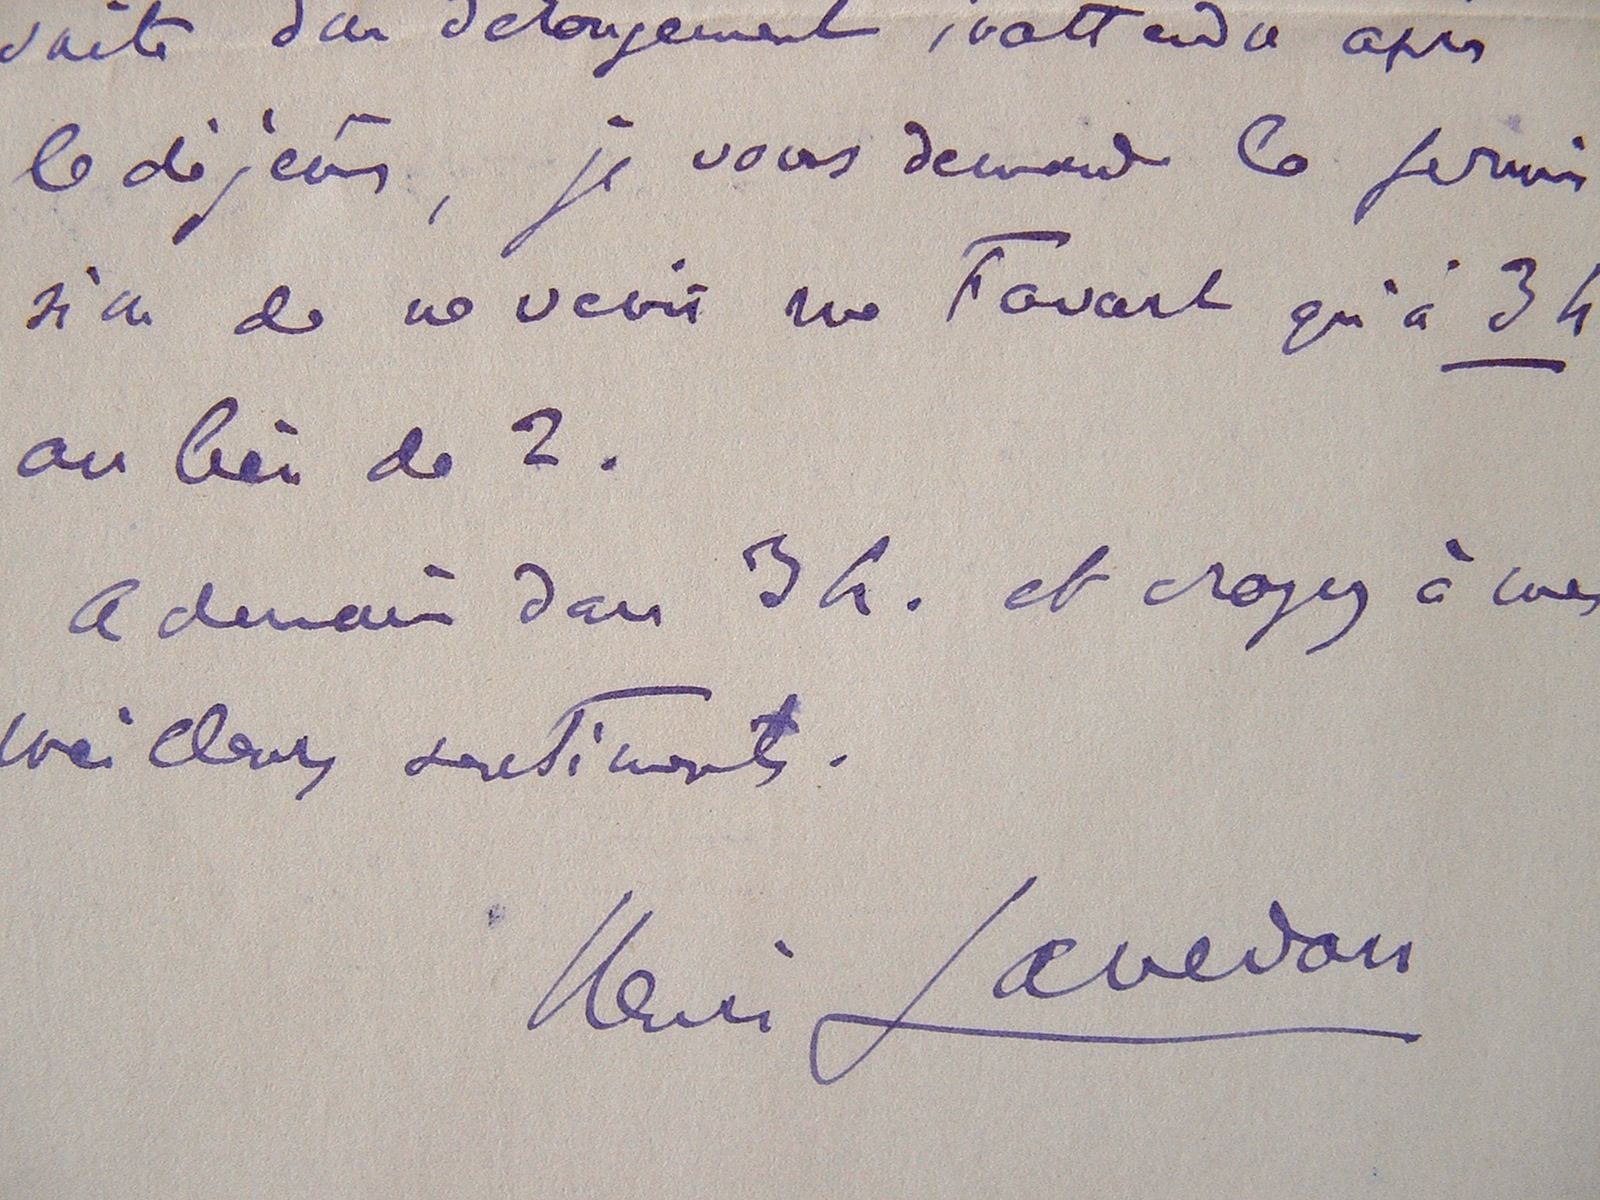 suite d'un dérangement inattendu après
le déjeuner, je vous demande la permis
sion de ne venir rue Favart qu'à 3 h
au lieu de 2.
A demain donc 3 h. et croyez à mes
meilleurs sentiments.
Henri Lavedan